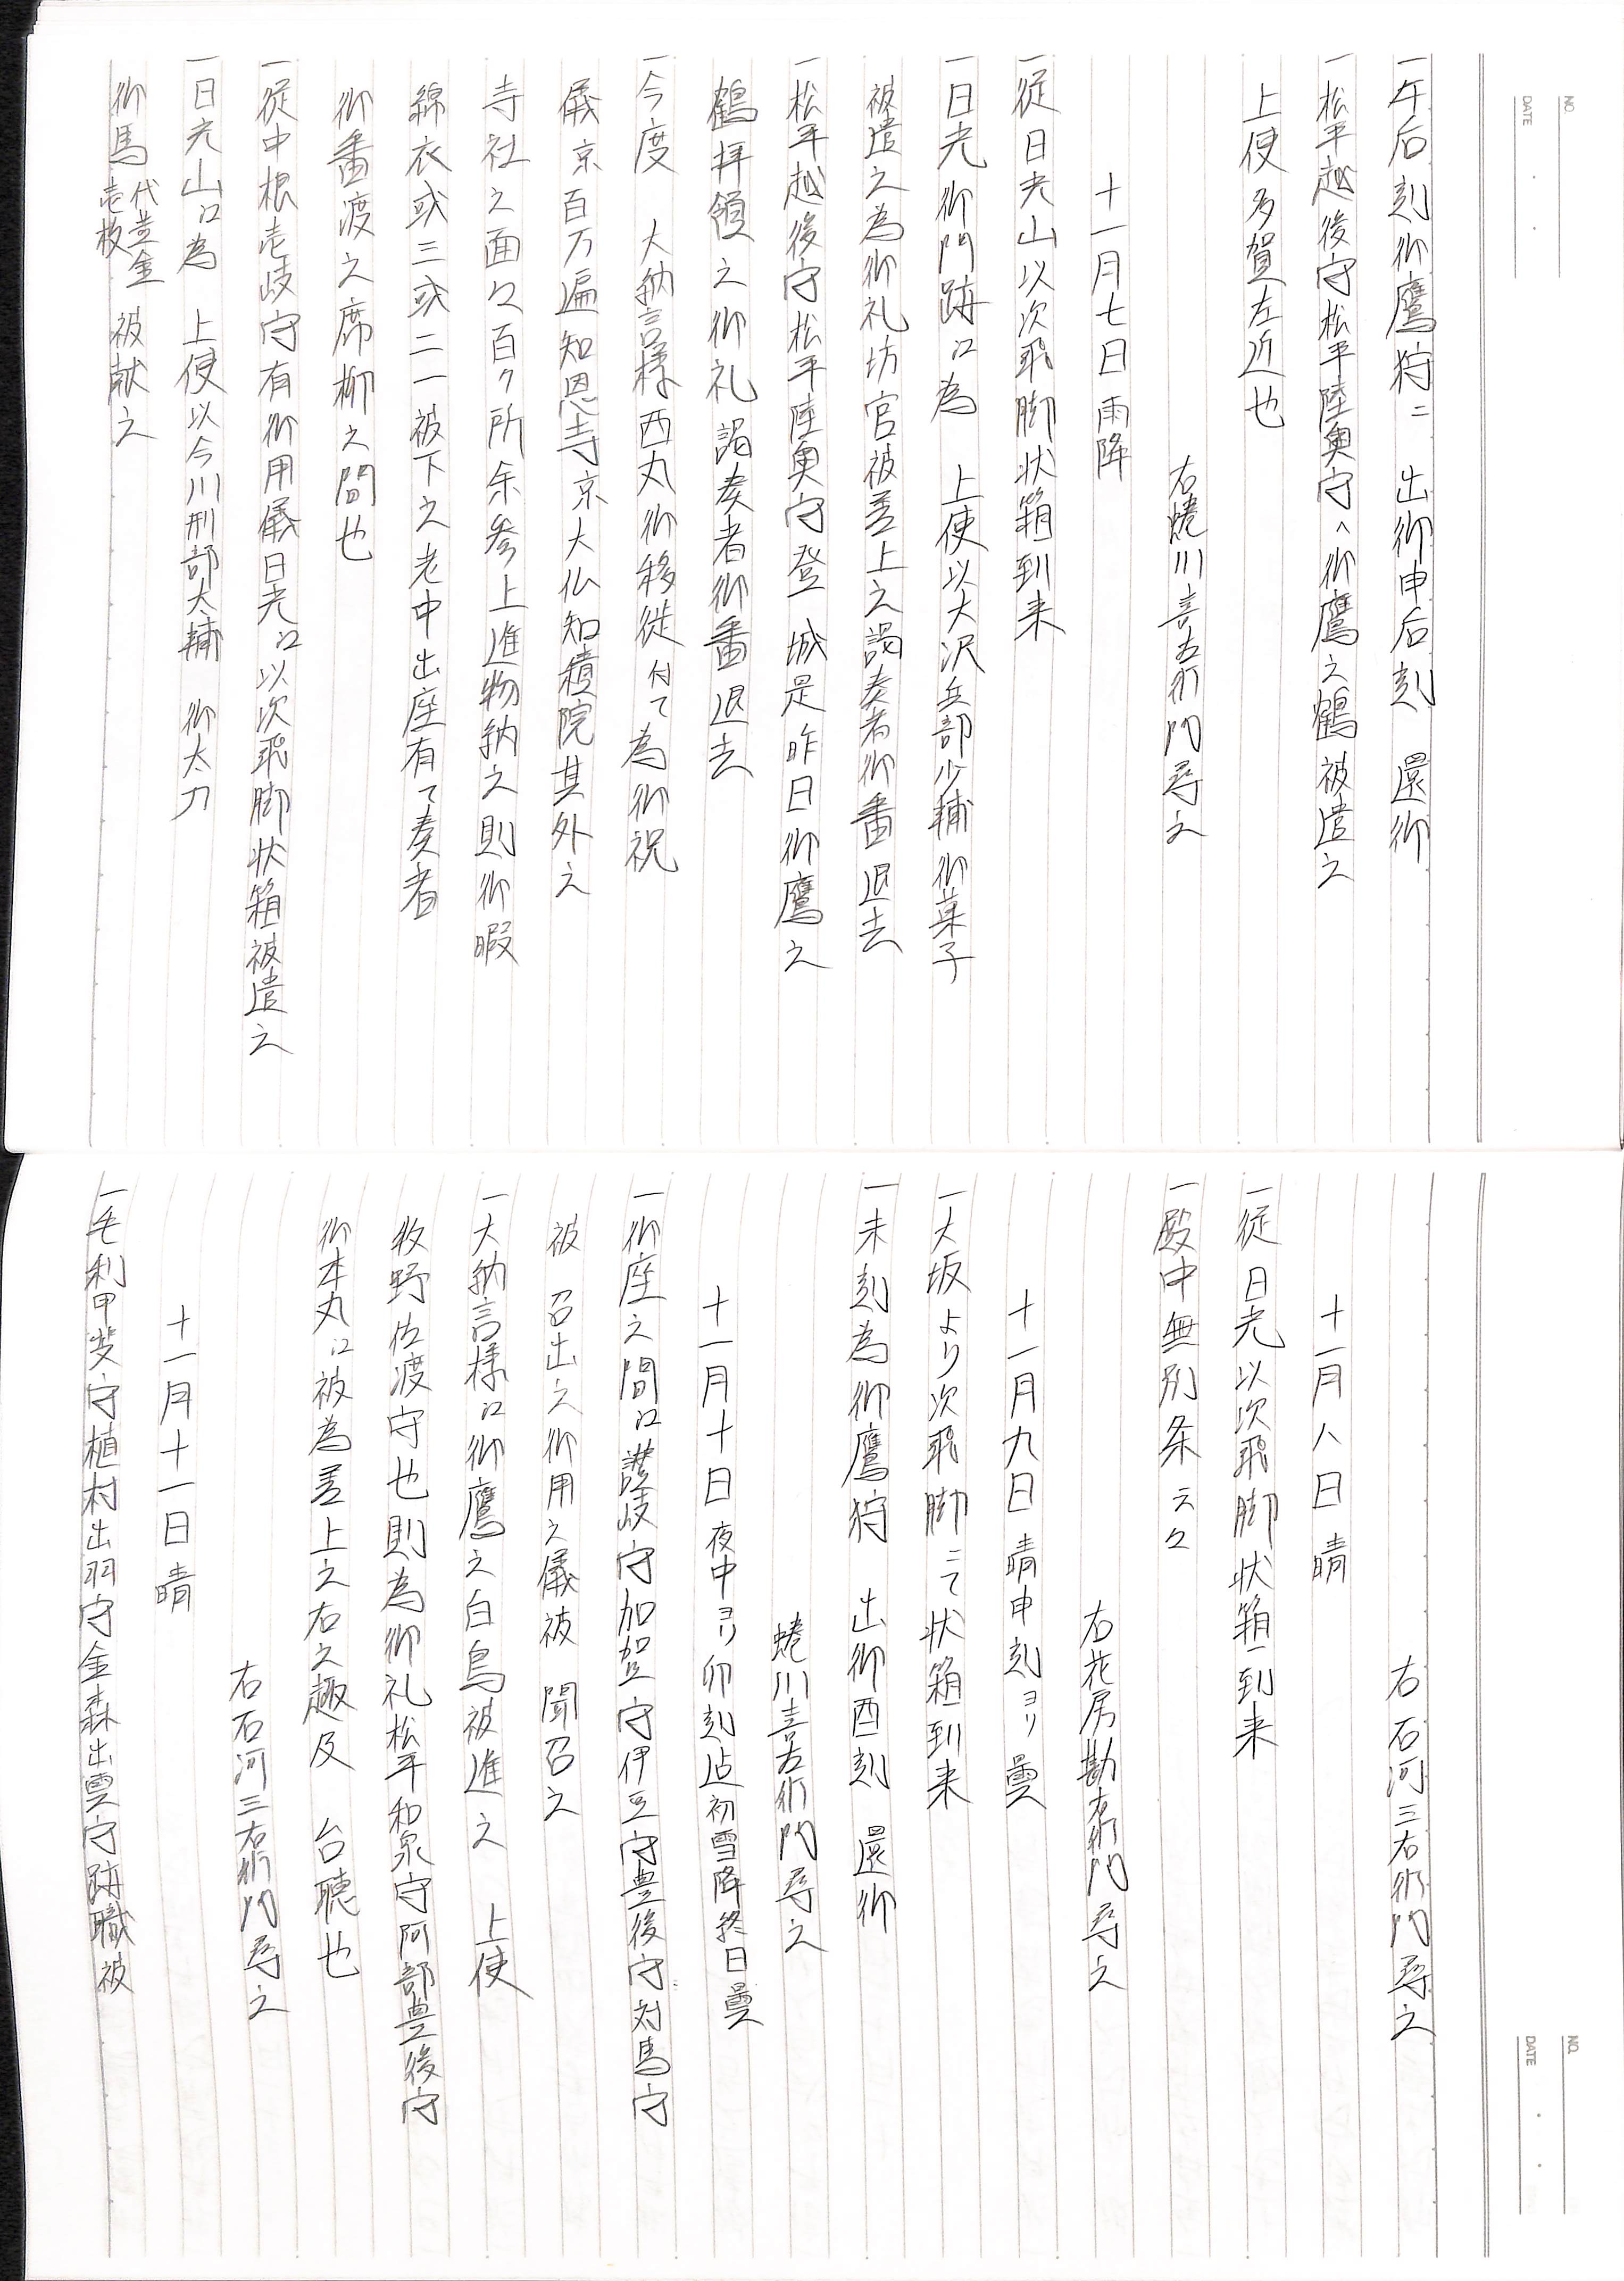 一午后刻御鷹狩ニ　出御申后刻　還御
一松平越後守松平陸奥守へ御鷹之鶴被遣之
上使多賀左近也
右蜷川喜左衛門尋之
十一月七日雨降
一従日光山以次飛脚状箱到来
一日光御門跡江為　上使以大沢兵部少輔御菓子
被遣之為御礼坊官被差上之謁奏者御番退去
一松平越後守松平陸奥守登　城是昨日御鷹之
鶴拝領之御礼謁奏者御番退去
一今度　大納言様西丸御移徙付て為御祝
儀京百万遍知恩寺京大仏知積院其外之
寺社之面々百ケ所余参上進物納之則御暇
綿衣或三或二一被下之老中出座有て奏者
御番渡之席柳之間也
一従中根壱岐守有御用儀日光江以次飛脚状箱被遣之
一日光山江為　上使以今川刑部大輔　御太刀
御馬代黄金壱枚　被献之
NO.
DATE
右石河三右衛門尋之
十一月八日晴
一従日光以次飛脚状箱到来
一殿中無別条云々
右花房勘右衛門尋之
十一月九日晴申刻ヨリ曇
一大坂より次飛脚ニて状箱到来
一未刻為御鷹狩　出御酉刻　還御
蜷川喜左衛門尋之
十一月十日夜中ヨリ卯刻迠初雪降終日曇
一御座之間江讃岐守加賀守伊豆守豊後守対馬守
被　召出之御用之儀被　聞召之
一大納言様江御鷹之白鳥被進之　上使
牧野佐渡守也則為御礼松平和泉守阿部豊後守
御本丸江被為差上之右之趣及　台聴也
右石河三右衛門尋之
十一月十一日晴
一毛利甲斐守植村出羽守金森出雲守跡職被
NO.
DATE